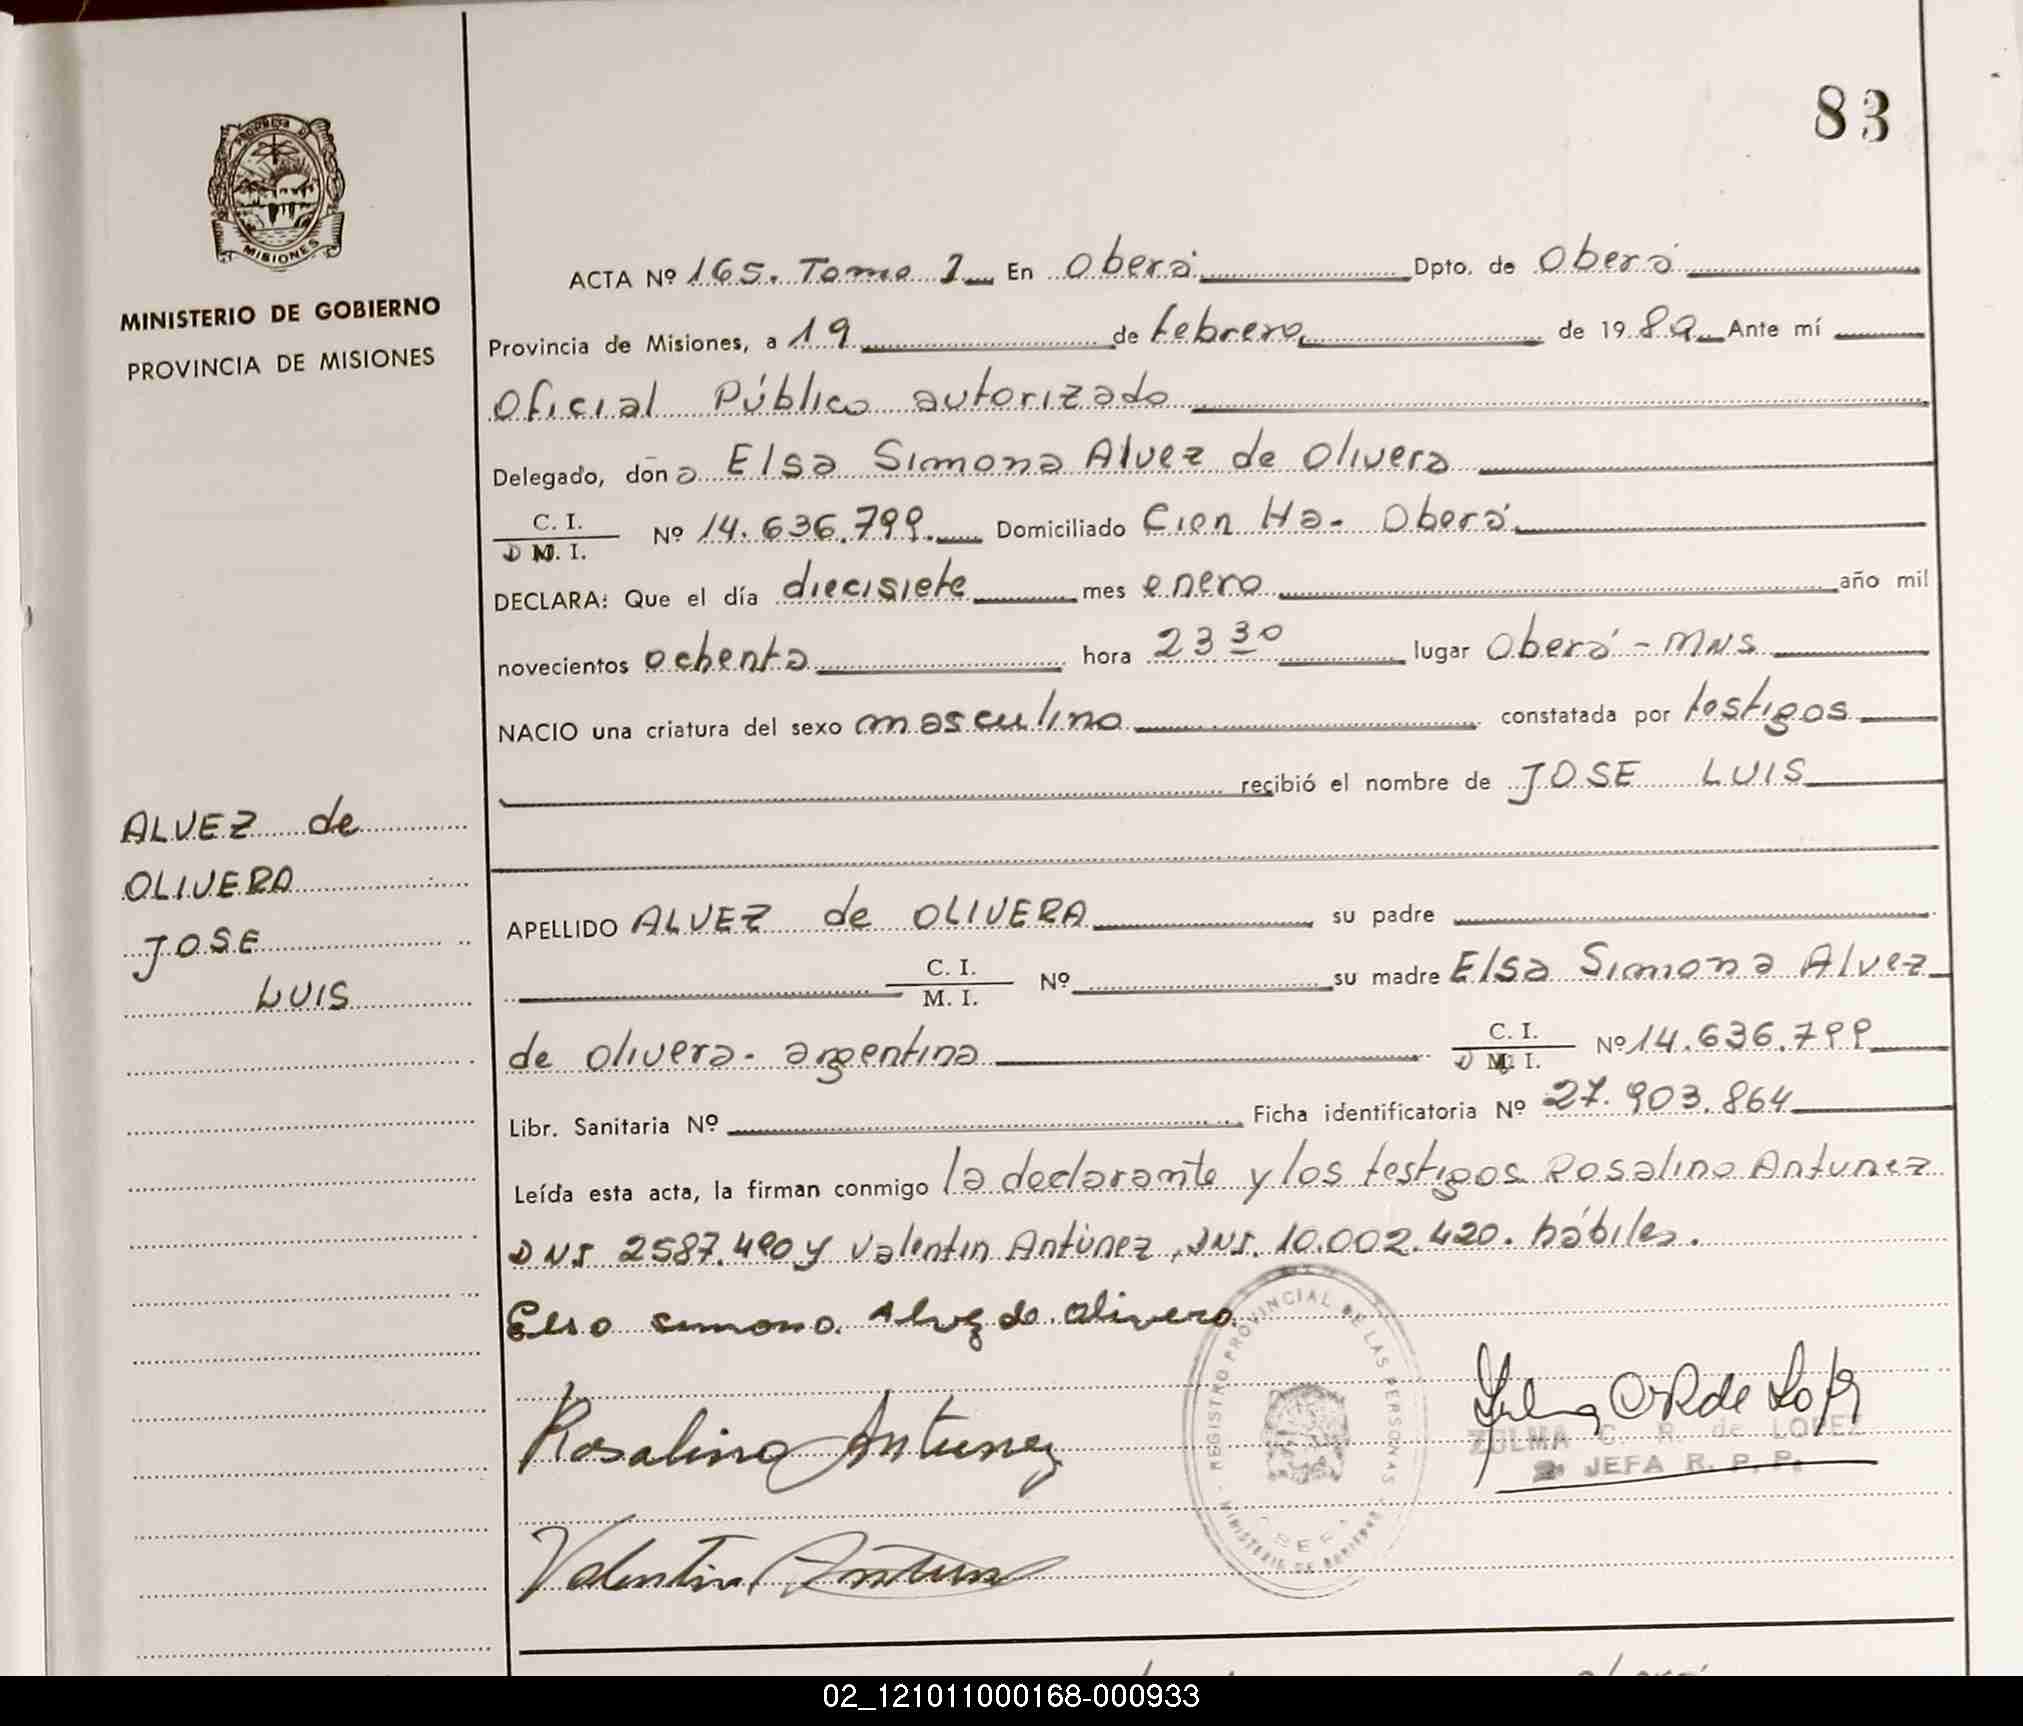 83
PROVINCIA DE
MISIONES
MINISTERIO DE GOBIERNO
PROVINCIA DE MISIONES
ACTA Nº 165. Tomo 1 En Oberá Dpto. de Oberá
Provincia de Misiones, a 19 de febrero de 1989 Ante mí
Oficial Público autorizado
Delegado, don a Elsa Simona Alvez de Olivera
C. I.
D N. I. Nº 14.636.799. Domiciliado Cien Ha- Oberá
DECLARA: Que el día diecisiete mes enero año mil
novecientos ochenta hora 23 30 lugar Oberá - MNS
NACIO una criatura del sexo masculino constatada por testigos
recibió el nombre de JOSE LUIS
ALVEZ de
OLIVERA
JOSE
LUIS
APELLIDO ALVEZ de OLIVERA su padre
C. I.
M. I. Nº su madre Elsa Simona Alvez
de Olivera- argentina C. I. D N. I. Nº 14.636.799
Libr. Sanitaria Nº Ficha identificatoria Nº 27.903.864
Leída esta acta, la firman conmigo la declarante y los testigos Rosalino Antunez
DNI 2587.490 y Valentin Antúnez, DNI. 10.002.420. hábiles.
Elsa simona Alvez de Olivera
Rosalino Antunez
Valentin Antunez
REGISTRO PROVINCIAL DE LAS PERSONAS
MINISTERIO DE GOBIERNO
ZULMA C. R. de LOPEZ
JEFA R. P. P.
02_121011000168-000933